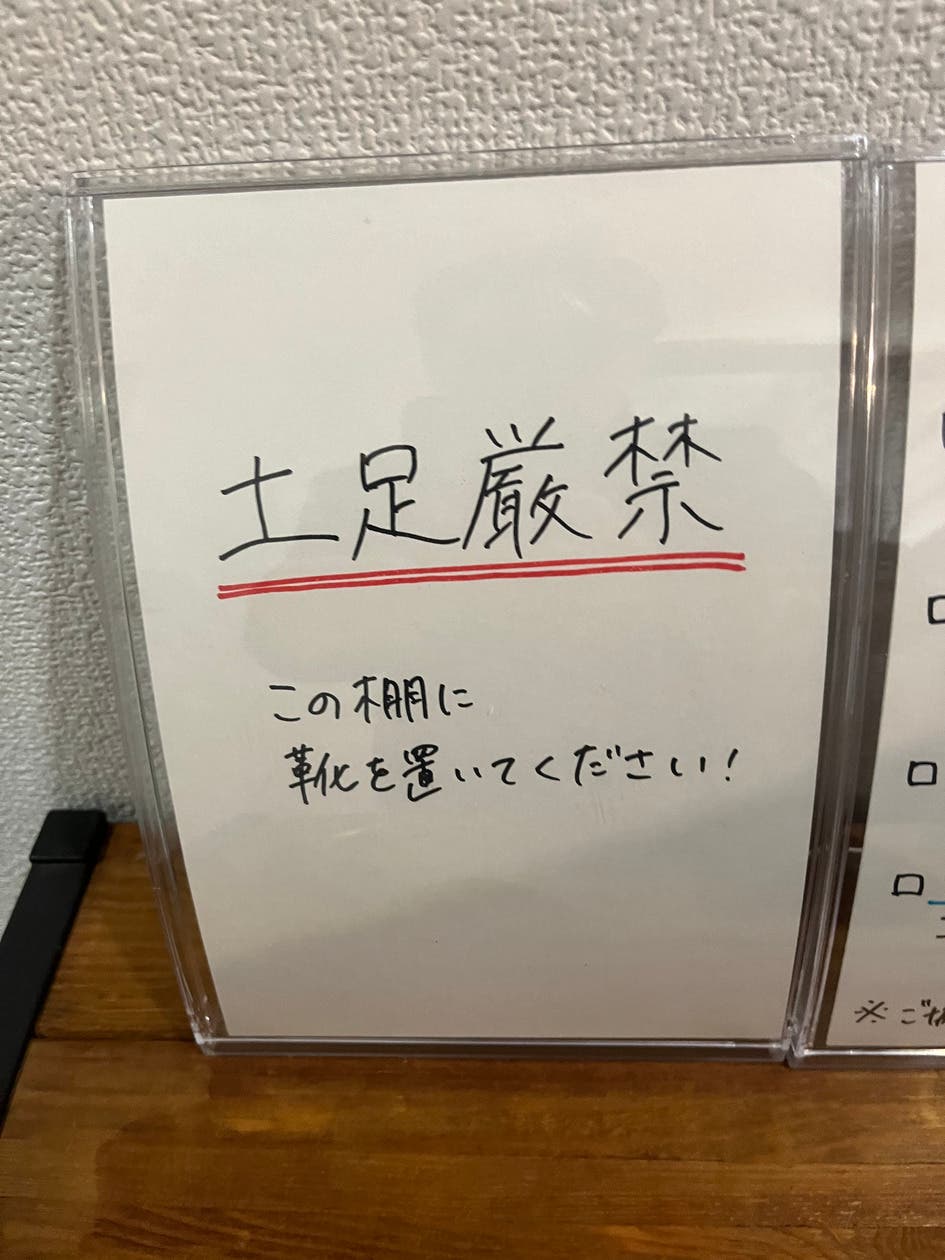 土足厳禁
この棚に
靴を置いてください！
※ご